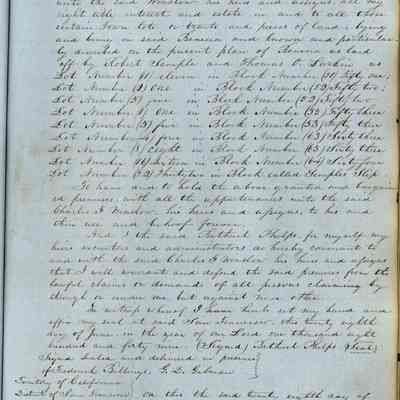 unto the said Winslow his heirs and assigns, all my
right title interest and estate in and to all those
certain Town lots or tracts and pieces of land lying
and being in said Benicia and known and particular-
ly described on the present plan of Benicia as laid
off by Robert Semple and Thomas O. Larkin as
Lot Number 11) eleven in Block Number (51) Fifty one;
Lot Number (1) One in Block Number (52) Fifty two;
Lot Number (5) five in Block Number (52) Fifty two
Lot Number (1) one in Block Number (53) Fifty three
Lot Number (5) five in Block Number (53) Fifty three
Lot Number five in Block Number (63) Sixty three
Lot Number (8) Eight in Block Number (63) Sixty three
Lot Number (16) Sixteen in Block Number (64) Sixty four
Lot Number (32) Thirty two in Block called Semples Slip
To have and to hold the above granted and bargain
ed premises, with all the appurtenances unto the said
Charles F. Winslow, his heirs and assigns, to his and
their use and behoof forever.
And I the said Bethuel Phelps for myself my
heirs executors and administrators do hereby covenant to
and with the said Charles F. Winslow his heirs and assigns
that I will warrant and defend the said premises from the
lawful claims or demands of all persons claiming by
through or under me but against none other.
In witness whereof I have hereto set my hand and
affix my seal at said San Francisco, this twenty eighth
day of June in the year of our Lord one thousand eight
hundred and forty nine. (Signed) Bethuel Phelps (Seal)
Signed sealed and delivered in presence
of Frederick Billings, G. D.
Territory of California
District of San Francisco On this the said twenty eighth day of